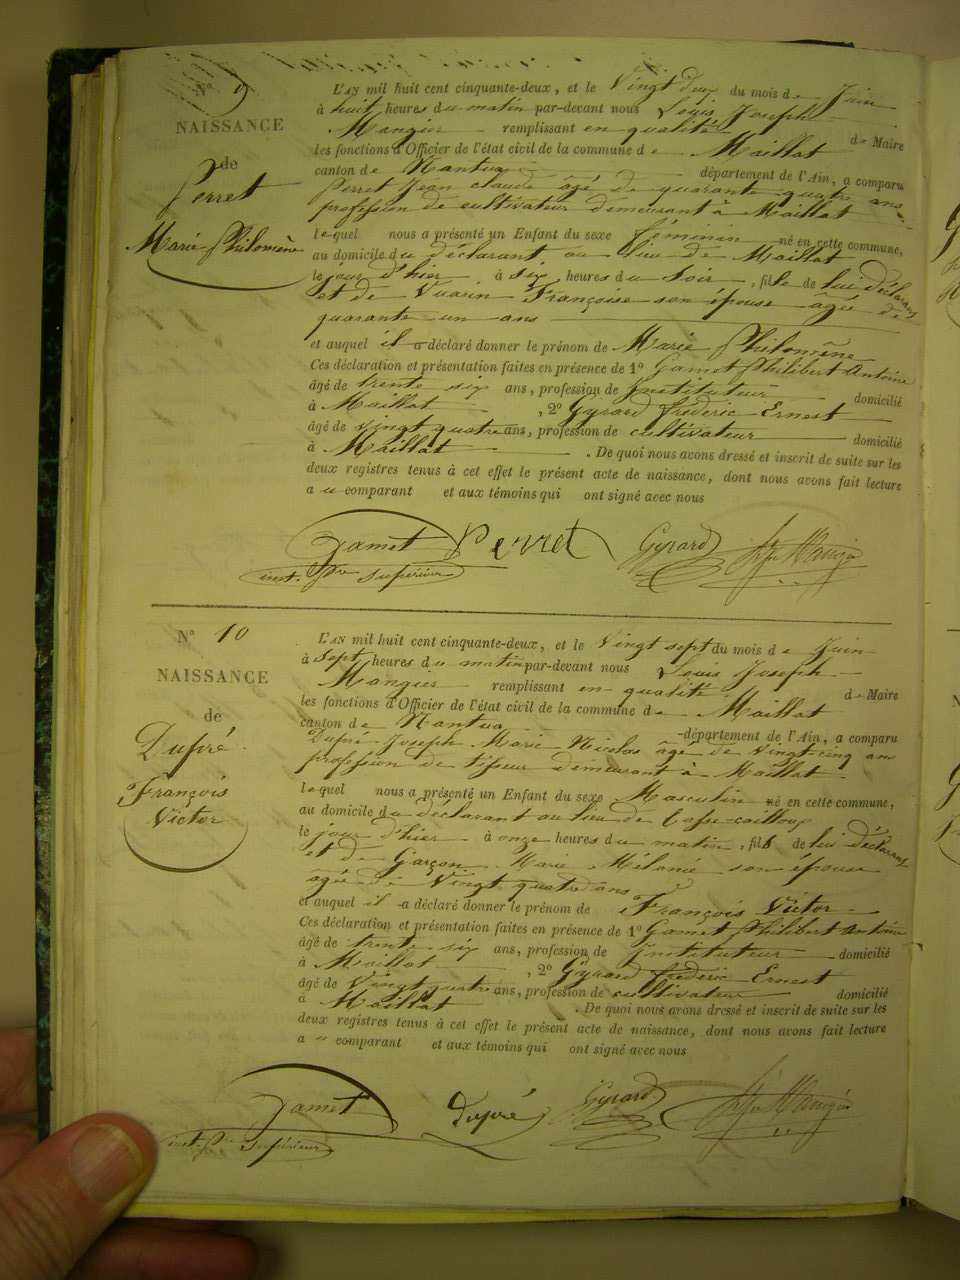 N° 9
NAISSANCE
de
Perret
Marie Philomène
L'AN mil huit cent cinquante-deux, et le Vingt deux du mois de Juin
à huit heures du matin par-devant nous Louis Joseph
Mangier remplissant en qualité de Maire
les fonctions d'Officier de l'état civil de la commune de Maillat
canton de Nantua département de l'Ain, a comparu
Perret Jean claude âgé de quarante quatre ans
profession de cultivateur demeurant à Maillat
lequel nous a présenté un Enfant du sexe féminin né en cette commune,
au domicile du déclarant, au lieu de Maillat
le jour d'hier à six heures du soir, fille de lui déclarant
et de Vuarin Françoise son épouse agée de
quarante un ans
et auquel il a déclaré donner le prénom de Marie Philomène
Ces déclaration et présentation faites en présence de 1° Gamet Philibert Antoine
âgé de trente six ans, profession de Instituteur domicilié
à Maillat, 2° Gyrard frédéric Ernest
âgé de vingt quatre ans, profession de cultivateur domicilié
à Maillat. De quoi nous avons dressé et inscrit de suite sur les
deux registres tenus à cet effet le présent acte de naissance, dont nous avons fait lecture
au comparant et aux témoins qui ont signé avec nous
Gamet Perret Gyrard Mangier
inst. supérieur
N° 10
NAISSANCE
de
Dupré
François
Victor
L'AN mil huit cent cinquante-deux, et le Vingt sept du mois de Juin
à Sept heures du matin par-devant nous Louis Joseph
Mangier remplissant en qualité de Maire
les fonctions d'Officier de l'état civil de la commune de Maillat
canton de Nantua département de l'Ain, a comparu
Dupré Joseph Marie Nicolas âgé de Vingt cinq ans
profession de tisseur demeurant à Maillat
lequel nous a présenté un Enfant du sexe Masculin né en cette commune,
au domicile du déclarant au lieu de Casse-cailloux
le jour d'hier à onze heures du matin, fils de lui déclarant
et de Garçon Marie Mélanie son épouse
âgée de Vingt quatre ans
et auquel il a déclaré donner le prénom de François Victor
Ces déclaration et présentation faites en présence de 1° Gamet Philibert Antoine
âgé de trente six ans, profession de Instituteur domicilié
à Maillat, 2° Gyrard frédéric Ernest
âgé de Vingt quatre ans, profession de cultivateur domicilié
à Maillat. De quoi nous avons dressé et inscrit de suite sur les
deux registres tenus à cet effet le présent acte de naissance, dont nous avons fait lecture
a " comparant et aux témoins qui ont signé avec nous
Gamet Dupré Gyrard Mangier
inst. supérieur